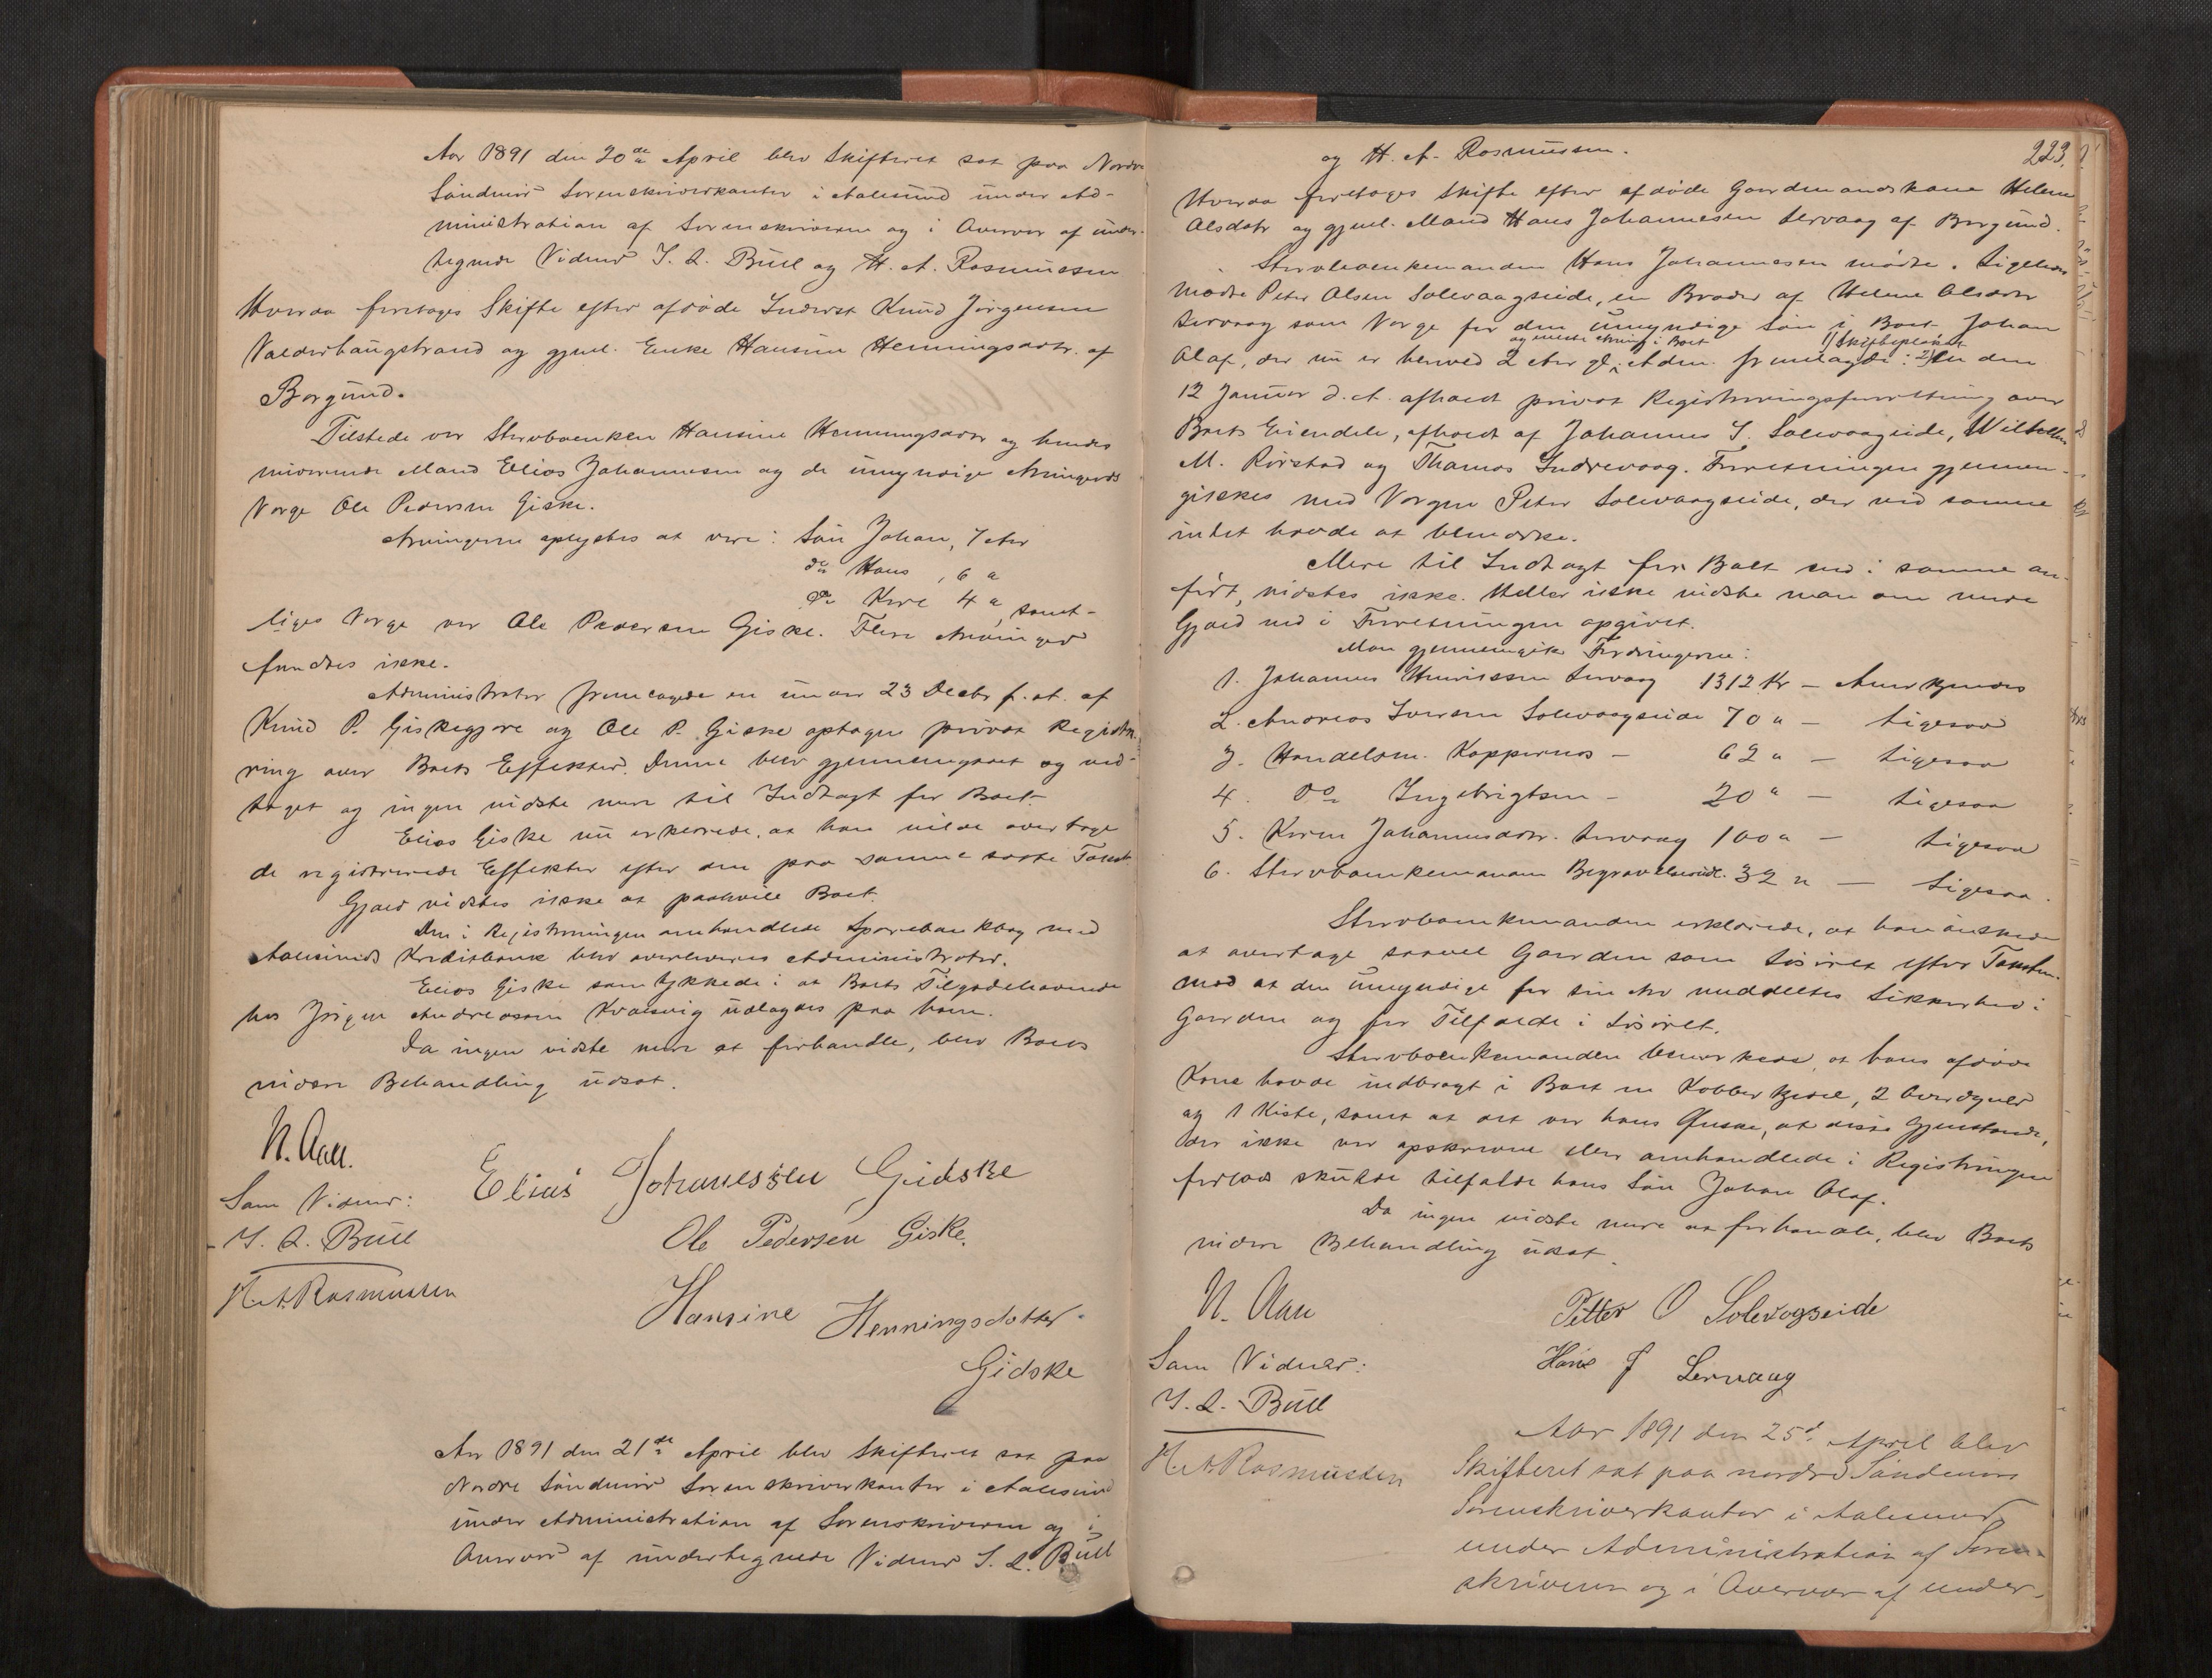 Aar 1891 den 20de April blev Skifteret sat paa Nordre
Söndmör Sorenskriverkontor i Aalesund under Ad-
ministration af Sorenskriveren og i Overvær af under-
tegnede Vidner S. L. Bull og H. A. Rasmussen
Hvorda foretoges Skifte efter afdöde Inderst Knud Jørgensen
Valderhaugstrand og gjenl. Enke Hansine Henningsdatr. af
Borgund.
Tilstede var Stervboenken Hansine Henningsdatr og hendes
nuværende Mand Elias Johannesen og de umyndige Arvingers
Verge Ole Pedersen Giske.
Arvingerne oplystes at være: Sön Johan, 7 Aar
do Hans, 6 "
do Kore 4 ", samt-
liges Verge var Ole Pedersen Giske. Flere Arvinger
fandtes ikke.
Administrator fremlagde en under 23 Decbr f. A. af
Knud P. Giskegjære og Ole P. Giske optagen privat Registre-
ring over Boets Effekter. Denne blev gjennemgaaet og ved-
taget og ingen vidste mere til Indtægt for Boet.
Elias Giske nu erklærede, at han vilde overtage
de registrerede Effekter efter den paa samme satte Taxt.
Gjæld vidstes ikke at paahvile Boet.
Den i Registreringen omhandlede Sparebankbog med
Aalesunds Kreditbank blev overleveret Administrator.
Elias Giske samtykkede i at Boets Tilgodehavende
hos Jörgen Andreassen Kvalsvig udlagdes paa ham.
Da ingen vidste mere at forhandle, blev Boets
videre Behandling udsat.
N. Aall.
Elias Johanessen Gidske
Som Vidner:
S. L. Bull
Ole Pedersen Giske.
H. A. Rasmussen
Hansine Henningsdotter.
Gidske
Aar 1891 den 21de April blev Skifteret sat paa
Nordre Söndmör Sorenskriverkontor i Aalesund
under Administration af Sorenskriveren og i
Overvær af undertegnede Vidner S. L. Bull
223.
og H. A. Rasmussen.
Hvorda foretoges Skifte efter afdöde Gaardmandskone Helene
Olsdatr og gjenl. Mand Hans Johannesen Lervaag af Borgund.
Stervboenkemanden Hans Johannesen mödte. Ligeledes
mödte Peter Olsen Solevaagseide, en Broder af Helene Olsdatr
Lervaag som Verge for den umyndige Sön i Boet Johan
og eneste Arving i Boet 1) Skifteplakat
Olaf, der nu er henved 2 Aar gl. Adm. fremlagde: 2) En den
12 Januar d. A. afholdt privat Registreringsforretning over
Boets Eiendele, afholdt af Johannes I. Solevaagseide, Wilhelm
M. Rörstad og Thomas Indrevaag. Forretningen gjennem-
gikkes med Vergen Peter Solevaagseide, der ved samme
intet havde at bemærke.
Mere til Indtægt for Boet end i samme an-
fört, vidstes ikke. Heller ikke vidste man om mere
Gjæld end i Forretningen opgivet.
Man gjennemgik Fordringerne:
1. Johannes Henriksen Lervaag 1312 Kr – Anerkjendes
2. Andreas Iversen Solevaagseide 70 " – Ligesaa
3. Handelsm. Koppernæs – 62 " – Ligesaa
4. do Ingebrigtsen – 20 " – Ligesaa
5. Karen Johannesdatr. Lervaag 100 " – Ligesaa
6. Stervboenkemanden Begravelsesudl. 32 " – Ligesaa.
Stervboenkemanden erklærede, at han önskede
at overtage saavel Gaarden som Lösöret efter Taxten
mod at den umyndige for sin Arv meddeltes Sikkerhed i
Gaarden og for Tilfælde i Lösöret.
Stervboenkemanden bemærkede, at hans afdöde
Kone havde indbragt i Boet en Kobberkjedel, 2 Overdyner
og 1 Kiste, samt at det var hans Önske, at disse Gjenstande,
der ikke var opskrevne eller omhandlede i Registreringen
forlods skulde tilfalde hans Sön Johan Olaf.
Da ingen vidste mere at forhandle, blev Boets
videre Behandling udsat.
N. Aall
Petter O Solevogseide
Som Vidner:
Hans J Lervaag
S. L. Bull
H. A. Rasmussen
Aar 1891 den 25d. April blev
Skifteret sat paa nordre Söndmörs
Sorenskriverkontor i Aalesund
under Administration af Soren-
skriveren og i Overvær af under-